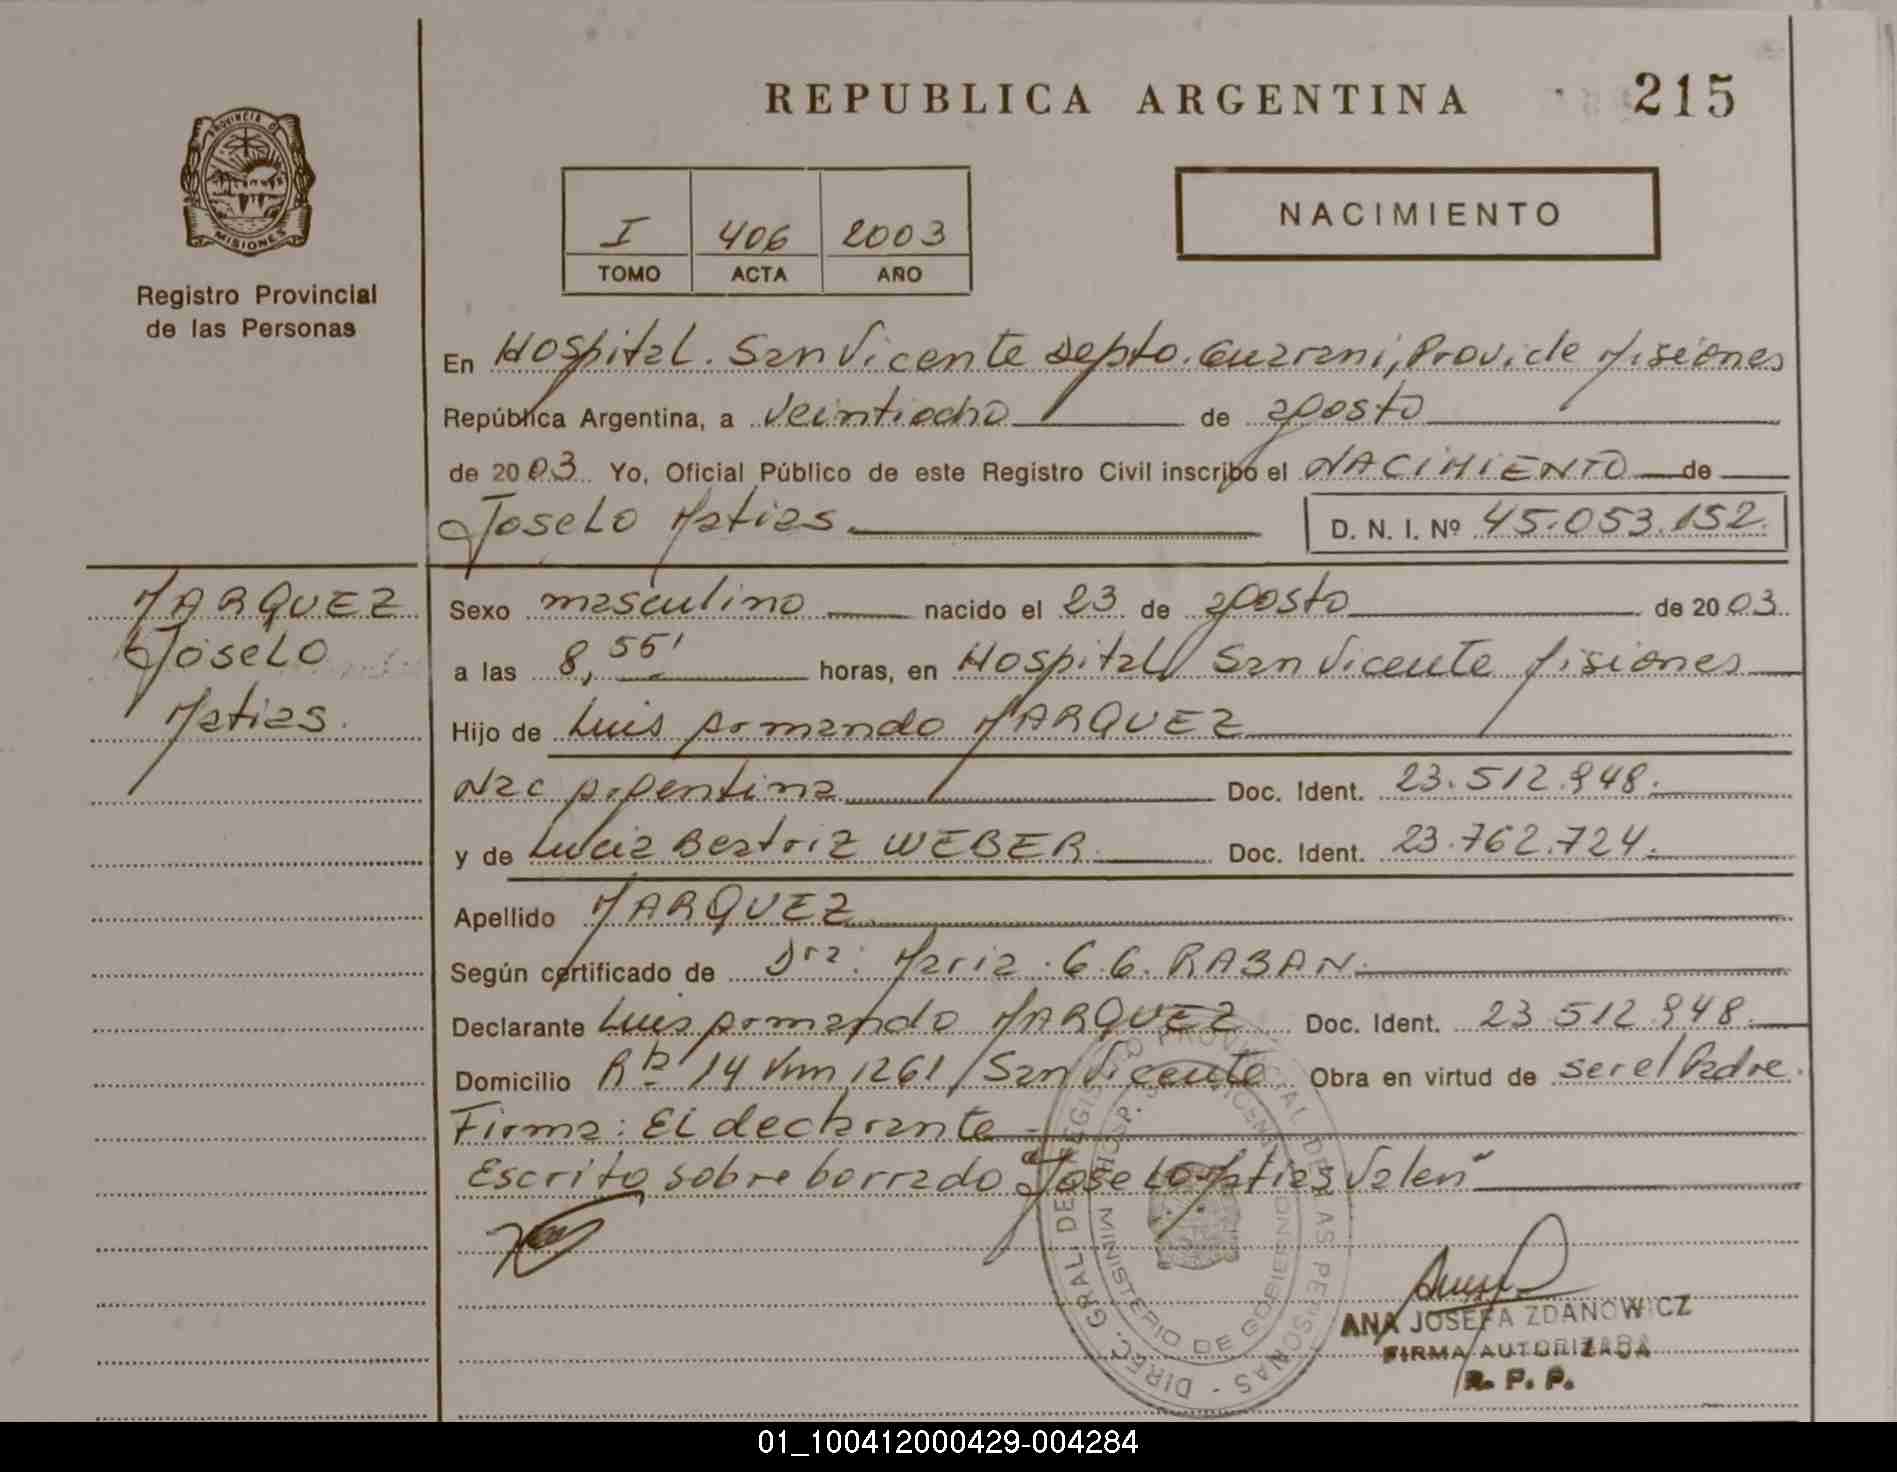 REPUBLICA ARGENTINA
215
PROVINCIA DE
MISIONES
Registro Provincial
de las Personas
I 406 2003
TOMO ACTA AÑO
NACIMIENTO
En Hospital. San Vicente depto. Guarani, Prov. de Misiones
República Argentina, a veintiocho de agosto
de 2003. Yo, Oficial Público de este Registro Civil inscribo el NACIMIENTO de
Joselo Matias
D. N. I. Nº 45.053.152.
MARQUEZ
Joselo
Matias.
Sexo masculino nacido el 23 de agosto de 2003.
a las 8,55' horas, en Hospital San Vicente Misiones
Hijo de Luis Armando MARQUEZ
Nac Argentina Doc. Ident. 23.512.948.
y de Lucia Beatriz WEBER Doc. Ident. 23.762.724.
Apellido MARQUEZ
Según certificado de Dra: Maria G.G. RABAN.
Declarante Luis Armando MARQUEZ Doc. Ident. 23 512 948.
Domicilio Rta 14 Km 1261 San Vicente Obra en virtud de ser el Padre.
Firma: El declarante
Escrito sobre borrado "Joselo Matias Valen"
DIREC. GRAL. DE REGISTRO PROVINCIAL DE LAS PERSONAS -
MINISTERIO DE GOBIERNO
HOSP. S. VICENTE
ANA JOSEFA ZDANOWICZ
FIRMA AUTORIZADA
R. P. P.
01_100412000429-004284